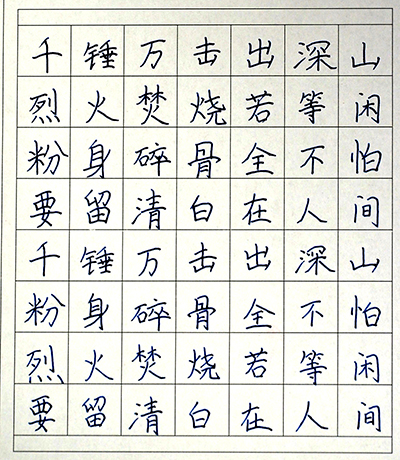 千锤万击出深山
烈火焚烧若等闲
粉身碎骨全不怕
要留清白在人间
千锤万击出深山
粉身碎骨全不怕
烈火焚烧若等闲
要留清白在人间